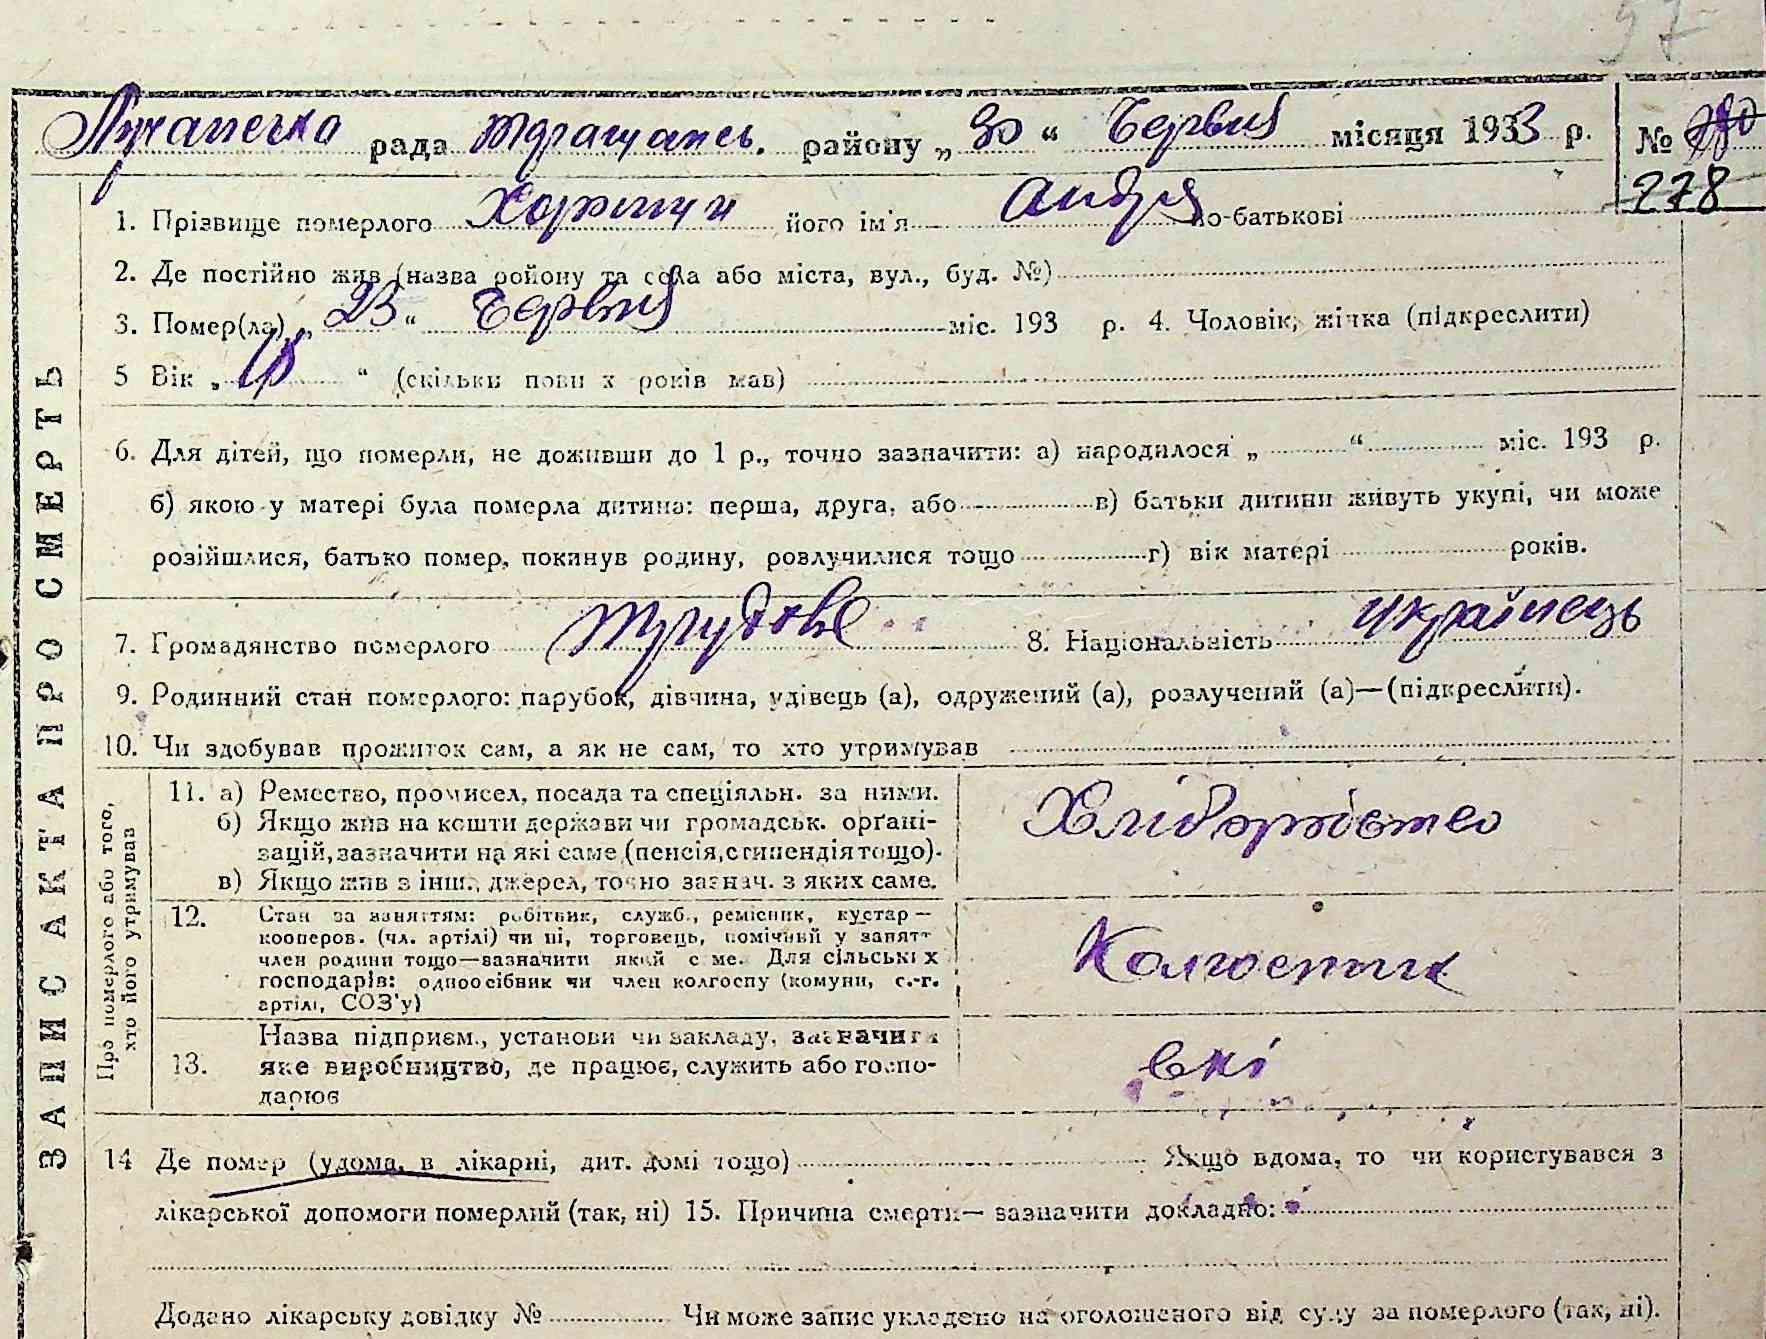 97
Лучанська рада Таращансь. району „ 30 “ Червня місяця 1933 р. № 280
278
1. Прізвище померлого його ім'я Андрія по-батькові
2. Де постійно жив (назва ройону та села або міста, вул., буд. №)
3. Помер(ла) „ 23 “ Червня міс. 193 р. 4. Чоловік, жінка (підкреслити)
5 Вік „ “ (скільки повних років мав)
6. Для дітей, що померли, не доживши до 1 р., точно зазначити: а) народилося „ “ міс. 193 р.
б) якою у матері була померла дитина: перша, друга, або в) батьки дитини живуть укупі, чи може
розійшлися, батько помер, покинув родину, розлучилися тощо г) вік матері років.
7. Громадянство померлого трудове 8. Національність українець
9. Родинний стан померлого: парубок, дівчина, удівець (а), одружений (а), розлучений (а)—(підкреслити).
10. Чи здобував прожиток сам, а як не сам, то хто утримував
ЗАПИС АКТА ПРО СМЕРТЬ
Про померлого або того,
хто його утримував
11. а) Ремество, промисел, посада та спеціяльн. за ними.
б) Якщо жив на кошти держави чи громадськ. орґані-
зацій, зазначити на які саме (пенсія, стипендія тощо).
в) Якщо жив з інш. джерел, точно зазнач. з яких саме.
Хліборобство
12. Стан за заняттям: робітник, служб., ремісник, кустар—
кооперов. (чл. артілі) чи ні, торговець, помічний у занятт
член родини тощо—зазначити який саме. Для сільських
господарів: одноосібник чи член колгоспу (комуни, с.-г.
артілі, СОЗ'у)
Колгоспник
13. Назва підприєм., установи чи закладу, зазначити
яке виробництво, де працює, служить або госпо-
дарює
14 Де помер (удома, в лікарні, дит. домі тощо) Якщо вдома, то чи користувався з
лікарської допомоги померлий (так, ні) 15. Причина смерти— зазначити докладно:
Додано лікарську довідку № Чи може запис укладено на оголошеного від суду за померлого (так, ні).